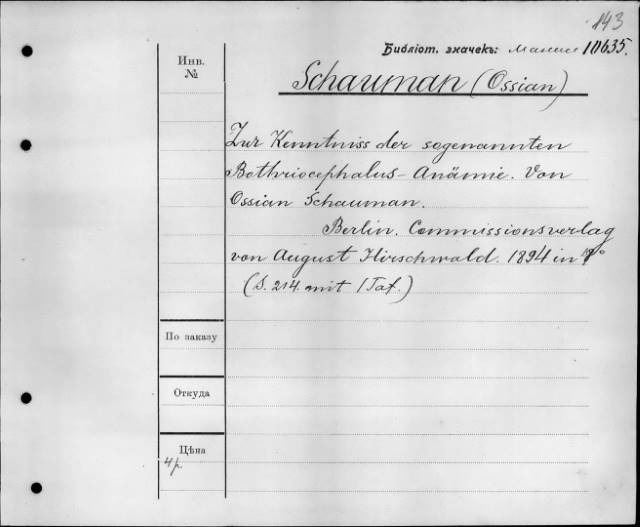 143
Библіот. значекъ: 10635.
Инв.
№
Schauman (Ossian)
Zur Kenntniss der sogenannten
Bothriocephalus-Anämie. Von
Ossian Schauman.
Berlin. Commissionsverlag
von August Hirschwald. 1894 in 
(S. 214. mit 1 Taf.)
По заказу
Откуда
Цѣна
4 р.